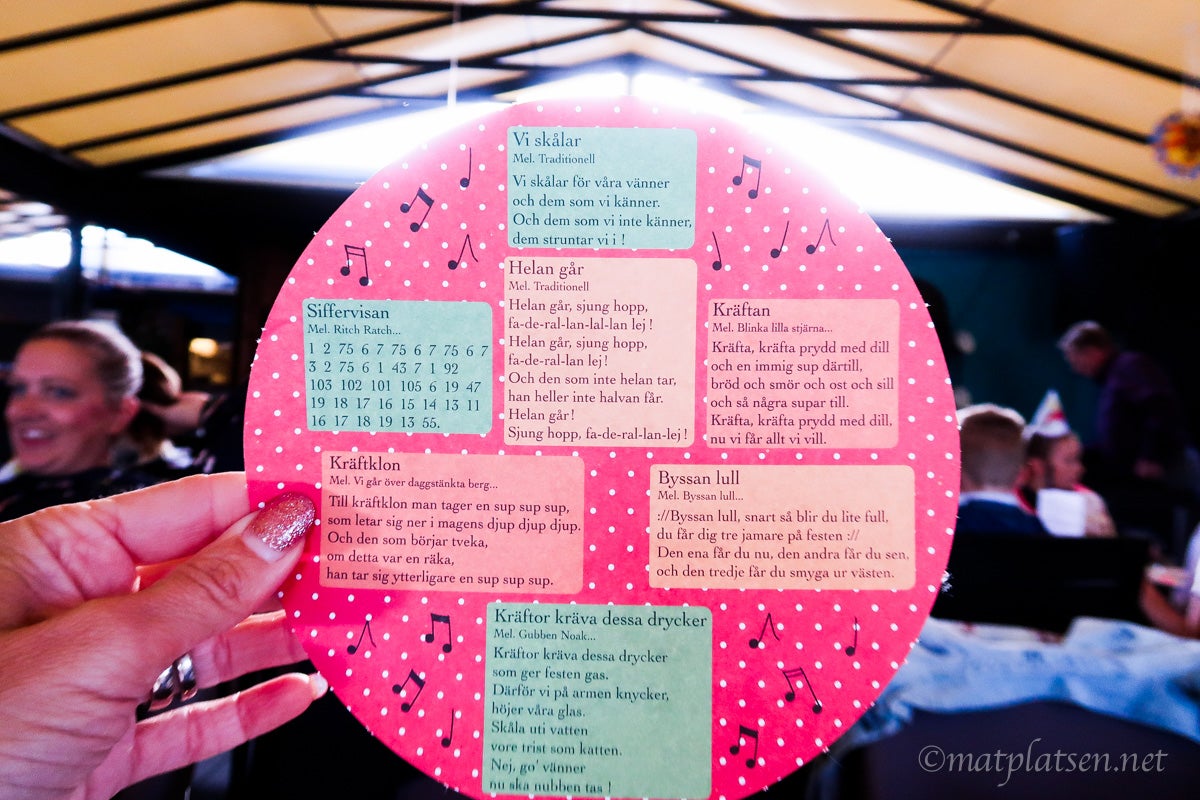 Vi skålar
Mel. Traditionell
Vi skålar för våra vänner
och dem som vi känner.
Och dem som vi inte känner,
dem struntar vi i !
Helan går
Mel. Traditionell
Helan går, sjung hopp,
fa-de-ral-lan-lal-lan lej !
Helan går, sjung hopp,
fa-de-ral-lan lej !
Och den som inte helan tar,
han heller inte halvan får.
Helan går!
Sjung hopp, fa-de-ral-lan-lej !
Siffervisan
Mel. Ritch Ratch...
1 2 75 6 7 75 6 7 75 6 7
3 2 75 6 1 43 7 1 92
103 102 101 105 6 19 47
19 18 17 16 15 14 13 11
16 17 18 19 13 55.
Kräftan
Mel. Blinka lilla stjärna...
Kräfta, kräfta prydd med dill
och en immig sup därtill,
bröd och smör och ost och sill
och så några supar till.
Kräfta, kräfta prydd med dill,
nu vi får allt vi vill.
Kräftklon
Mel. Vi går över daggstänkta berg...
Till kräftklon man tager en sup sup sup,
som letar sig ner i magens djup djup djup.
Och den som börjar tveka,
om detta var en räka,
han tar sig ytterligare en sup sup sup.
Byssan lull
Mel. Byssan lull...
://Byssan lull, snart så blir du lite full,
du får dig tre jamare på festen ://
Den ena får du nu, den andra får du sen,
och den tredje får du smyga ur västen.
Kräftor kräva dessa drycker
Mel. Gubben Noak...
Kräftor kräva dessa drycker
som ger festen gas.
Därför vi på armen knycker,
höjer våra glas.
Skåla uti vatten
vore trist som katten.
Nej, go' vänner
nu ska nubben tas !
©matplatsen.net